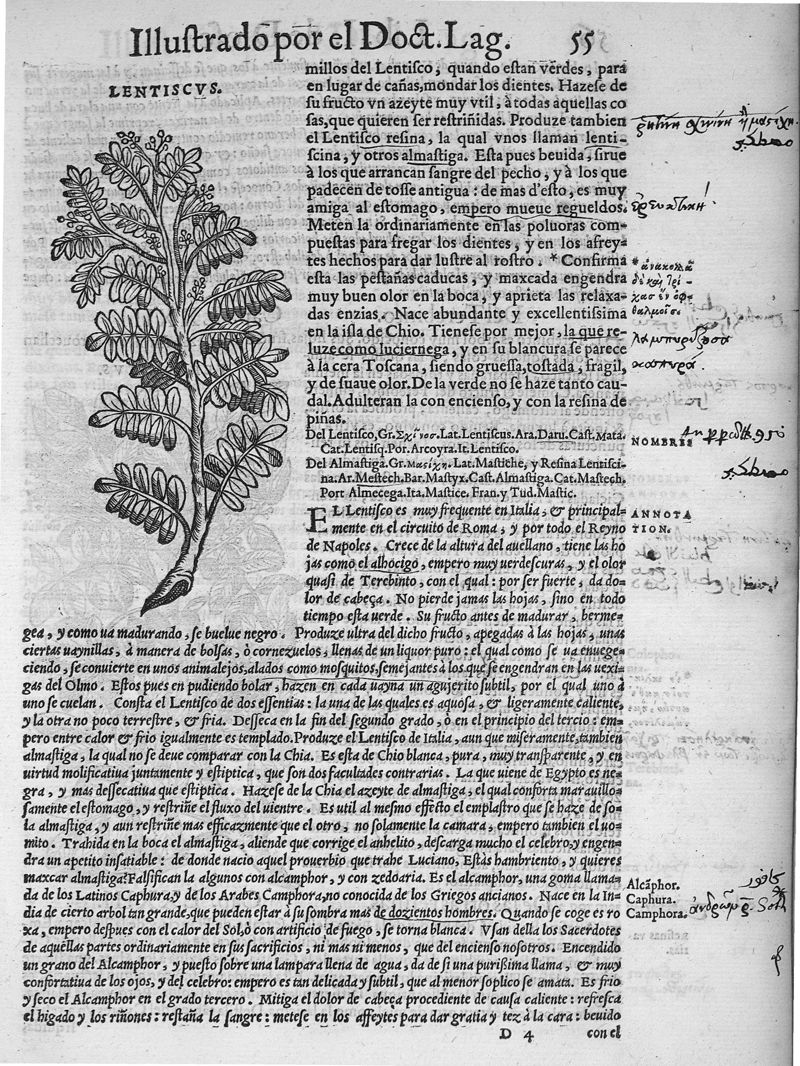 Illustrado por el Doct. Lag. 55
LENTISCVS.
millos del Lentisco, quando estan verdes, para
en lugar de cañas, mondar los dientes. Hazese de
su fructo vn azeyte muy vtil, à todas aquellas co
sas, que quieren ser restriñidas. Produze tambien
el Lentisco resina, la qual vnos llaman lenti-
scina, y otros almastiga. Esta pues beuida, sirue
à los que arrancan sangre del pecho, y à los que
padecen de tosse antigua: de mas d'esto, es muy
amiga al estomago, empero mueue regueldos.
Meten la ordinariamente en las poluoras com-
puestas para fregar los dientes, y en los afrey-
tes hechos para dar lustre al rostro. * Confirma
esta las pestañas caducas, y maxcada engendra
muy buen olor en la boca, y aprieta las relaxa-
das enzias. Nace abundante y excellentissima
en la isla de Chio. Tienese por mejor, la que re-
luze como luciernega, y en su blancura se parece
à la cera Toscana, siendo gruessa, tostada, fragil,
y de suaue olor. De la verde no se haze tanto cau-
dal. Adulteran la con encienso, y con la resina de
piñas.
Del Lentisco, Gr. Σχῖνοσ. Lat. Lentiscus. Ara. Daru. Cast. Mata.
Cat. Lentisq. Por. Arcoyra. It. Lentisco.
NOMBRES
Del Almastiga. Gr. Μασίχη. Lat. Mastiche, y Resina Lentisci-
na. Ar. Mestech. Bar. Mastyx. Cast. Almastiga. Cat. Mastech.
Port Almecega. Ita. Mastice. Fran. y Tud. Mastic.
EL Lentisco es muy frequente en Italia, & principal-
mente en el circuito de Roma, y por todo el Reyno
de Napoles. Crece de la altura del auellano, tiene las ho
jas como el alhocigo, empero muy verdescuras, y el olor
quasi de Terebinto, con el qual: por ser fuerte, da do-
lor de cabeça. No pierde jamas las hojas, sino en todo
tiempo esta uerde. Su fructo antes de madurar, berme-
ANNOTA
TION.
gea, y como ua madurando, se buelue negro. Produze ultra del dicho fructo, apegadas à las hojas, unas
ciertas uaynillas, à manera de bolsas, ò cornezuelos, llenas de un liquor puro: el qual como se ua enuege-
ciendo, se conuierte en unos animalejos, alados como mosquitos, semejantes à los que se engendran en las uexi-
gas del Olmo. Estos pues en pudiendo bolar, hazen en cada uayna un agujerito subtil, por el qual uno à
uno se cuelan. Consta el Lentisco de dos essentias: la una de las quales es aquosa, & ligeramente caliente,
y la otra no poco terrestre, & fria. Desseca en la fin del segundo grado, ò en el principio del tercio: em-
pero entre calor & frio igualmente es templado. Produze el Lentisco de Italia, aun que miseramente, tambien
almastiga, la qual no se deue comparar con la Chia. Es esta de Chio blanca, pura, muy transparente, y en
uirtud molificatiua juntamente y estiptica, que son dos facultades contrarias. La que uiene de Egypto es ne-
gra, y mas dessecatiua que estiptica. Hazese de la Chia el azeyte de almastiga, el qual conforta marauillo-
samente el estomago, y restriñe el fluxo del uientre. Es util al mesmo effecto el emplastro que se haze de so-
la almastiga, y aun restriñe mas efficazmente que el otro, no solamente la camara, empero tambien el uo-
mito. Trahida en la boca el almastiga, aliende que corrige el anhelito, descarga mucho el celebro, y engen-
dra un apetito insatiable: de donde nacio aquel prouerbio que trahe Luciano, Estàs hambriento, y quieres
maxcar almastiga? Falsifican la algunos con alcamphor, y con zedoaria. Es el alcamphor, una goma llama-
da de los Latinos Caphura, y de los Arabes Camphora, no conocida de los Griegos ancianos. Nace en la In-
dia de cierto arbol tan grande, que pueden estar à su sombra mas de dozientos hombres. Quando se coge es ro
xa, empero despues con el calor del Sol, ò con artificio de fuego, se torna blanca. Vsan della los Sacerdotes
Alcãphor.
Caphura.
Camphora.
de aquellas partes ordinariamente en sus sacrificios, ni mas ni menos, que del encienso nosotros. Encendido
un grano del Alcamphor, y puesto sobre una lampara llena de agua, da de si una purissima llama, & muy
confortatiua de los ojos, y del celebro: empero es tan delicada y subtil, que al menor soplico se amata. Es frio
y seco el Alcamphor en el grado tercero. Mitiga el dolor de cabeça procediente de causa caliente: refresca
el higado y los riñones: restaña la sangre: metese en los affeytes para dar gratia y tez à la cara: beuido
D 4 con el